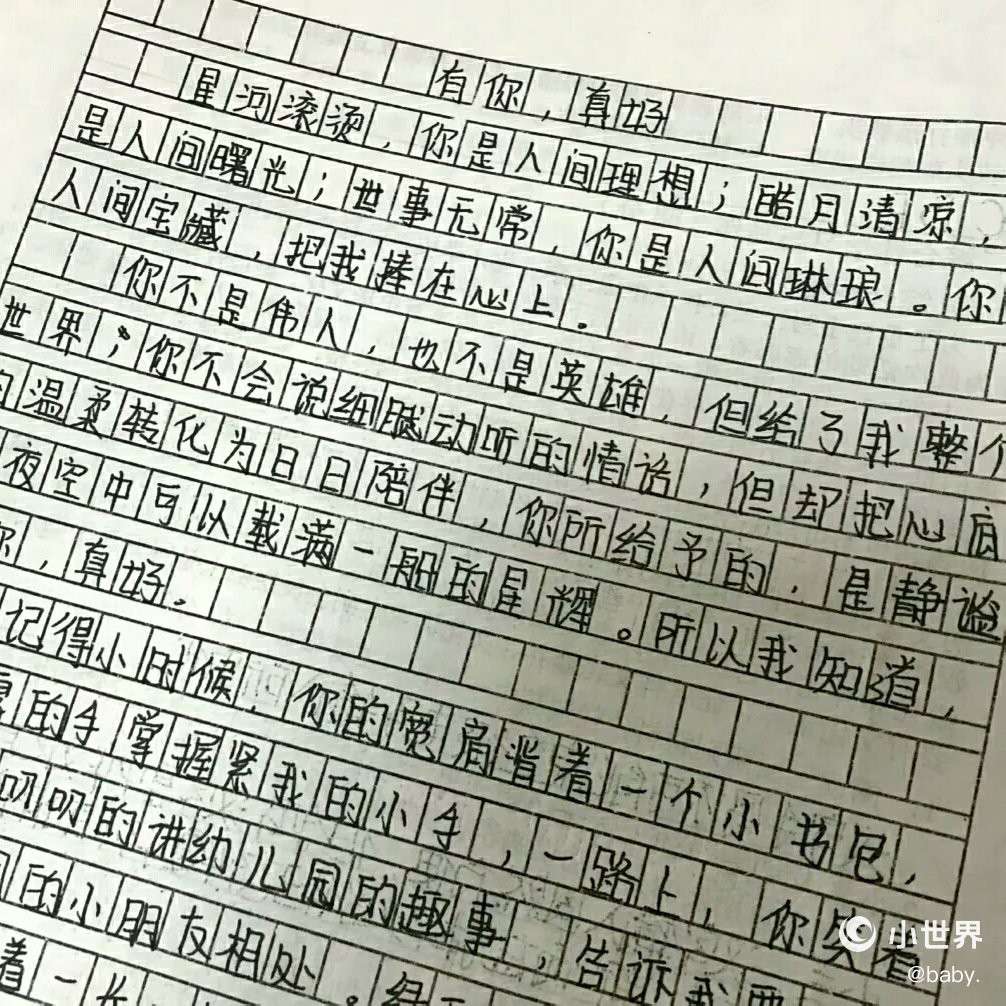 有你，真好
星河滚烫，你是人间理想；皓月清凉，
是人间曙光；世事无常，你是人间琳琅。你
人间宝藏，把我捧在心上。
你不是伟人，也不是英雄，但给了我整个
世界；你不会说细腻动听的情话，但却把心底
的温柔转化为日日陪伴，你所给予的，是静谧
夜空中可以载满一船的星辉。所以我知道，
你，真好。
记得小时候，你的宽肩背着一个小书包，
的手掌握紧我的小手，一路上，你笑着
叨叨的讲幼儿园的趣事，告诉我要
的小朋友相处。
着一
小世界
@baby.